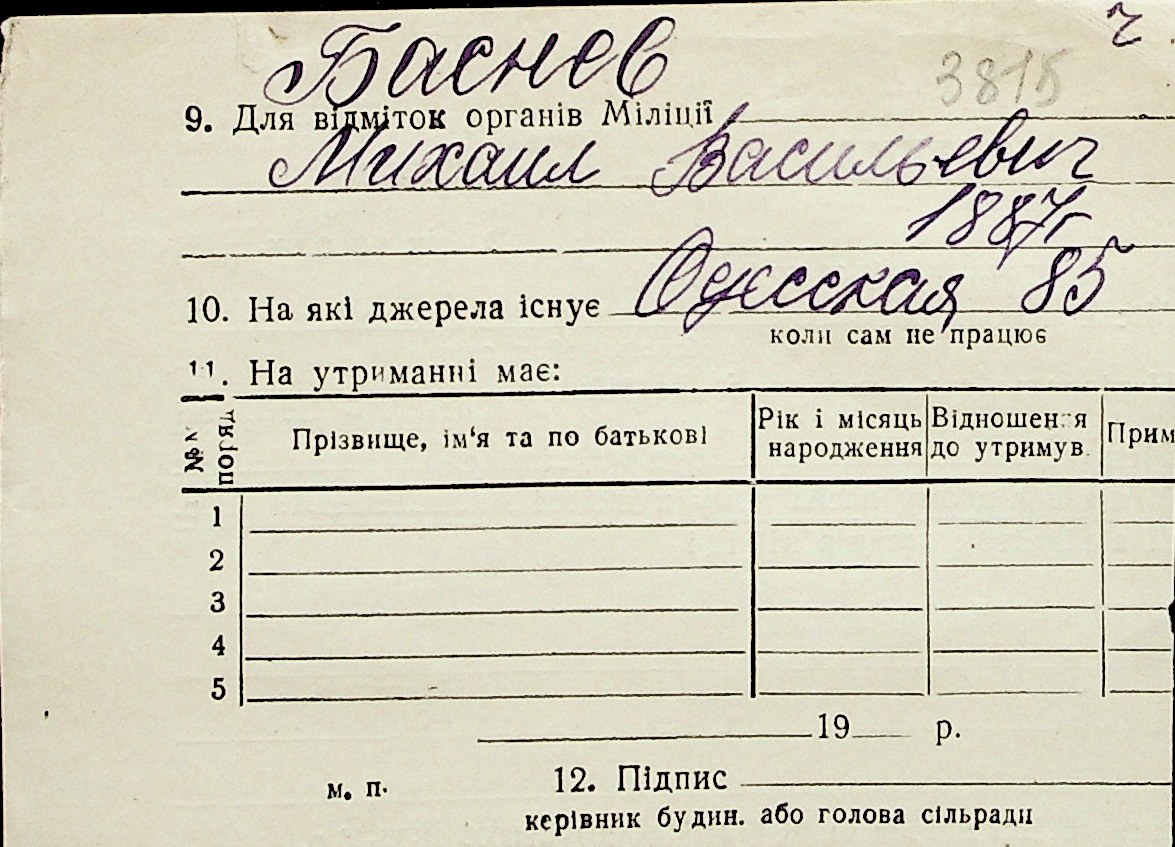 ч
Баснев
3815
9. Для відміток органів Міліції
Михаил Васильевич
1887г
Одесская 85
10. На які джерела існує
коли сам не працює
11. На утриманні має:
№№ поряд
Прізвище, ім‘я та по батькові
Рік і місяць народження
Відношення до утримув.
Прим
1
2
3
4
5
19 р.
м. п.
12. Підпис
керівник будин. або голова сільради